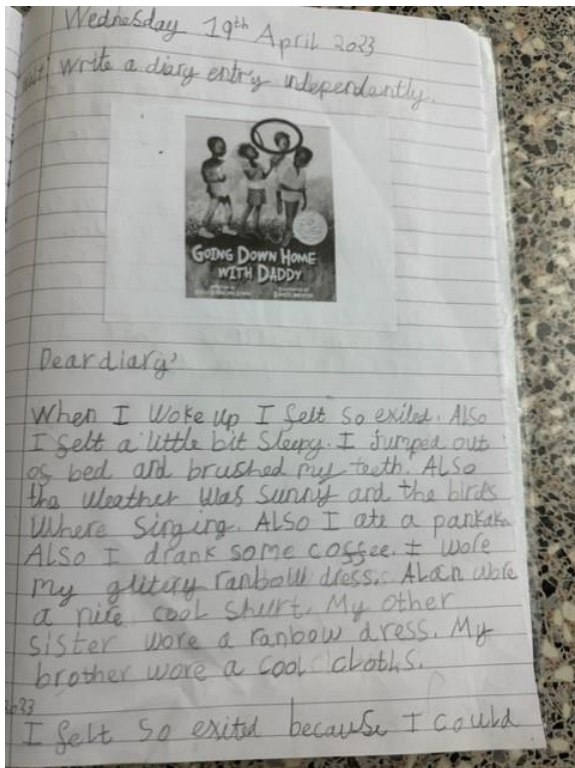 Wednesday 19th April 2023
Walt: Write a diary entry independently.
GOING DOWN HOME
WITH DADDY
Dear diary,
When I woke up I felt so exited. Also
I felt a little bit sleepy. I jumped out
of bed and brushed my teeth. Also
the weather was sunny and the birds
where singing. Also I ate a pankake.
Also I drank some coffee. I wore
my glitery ranbow dress. Alan wore
a nice cool shurt. My other
sister wore a ranbow dress. My
brother wore a cool cloths.
2033
I felt so exited because I could